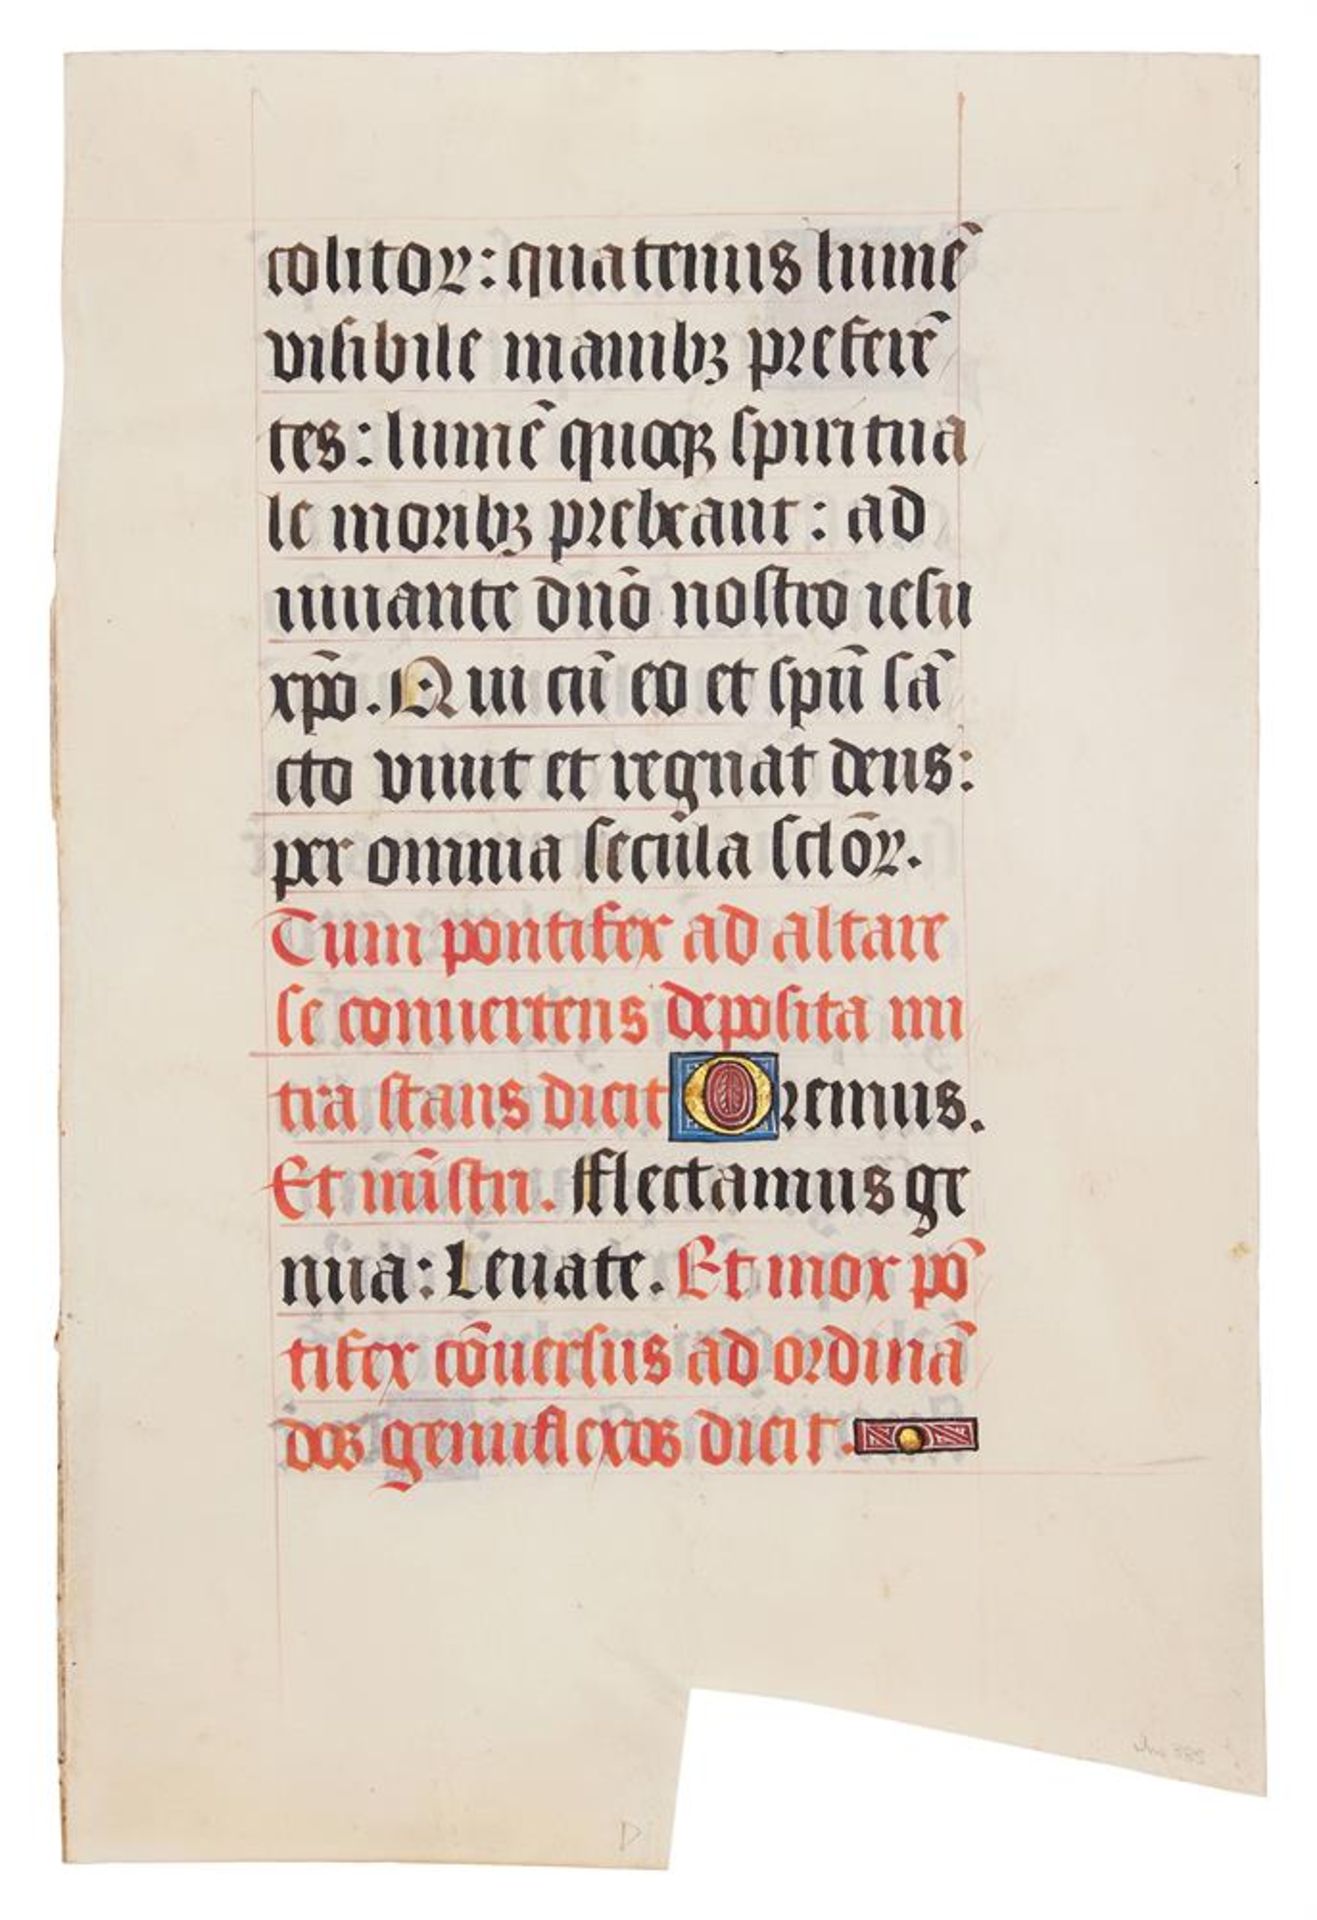 colitoꝝ: quatenus lumē
visibile manibꝫ preferē
tes: lumē quoqꝫ spiritua
le moribꝫ prebeant: ad
iuuante dño nostro iesu
xp̄o. Qui cū eo et spū sā
cto viuit et regnat deus:
per omnia secula sclōꝝ.
Tum pontifex ad altare
se conuertens deposita mi
tra stans dicit Oremus.
Et mīstri. Flectamus ge
nua: Leuate. Et mox pō
tifex cōuersus ad ordinā
dos genuflexos dicit.
D